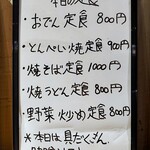 本日の定食
・おでん定食 800円
・とんぺい焼定食 900円
・焼そば定食 1000円
・焼うどん定食 800円
・野菜炒め定食 800円
＊本日は具だくさん